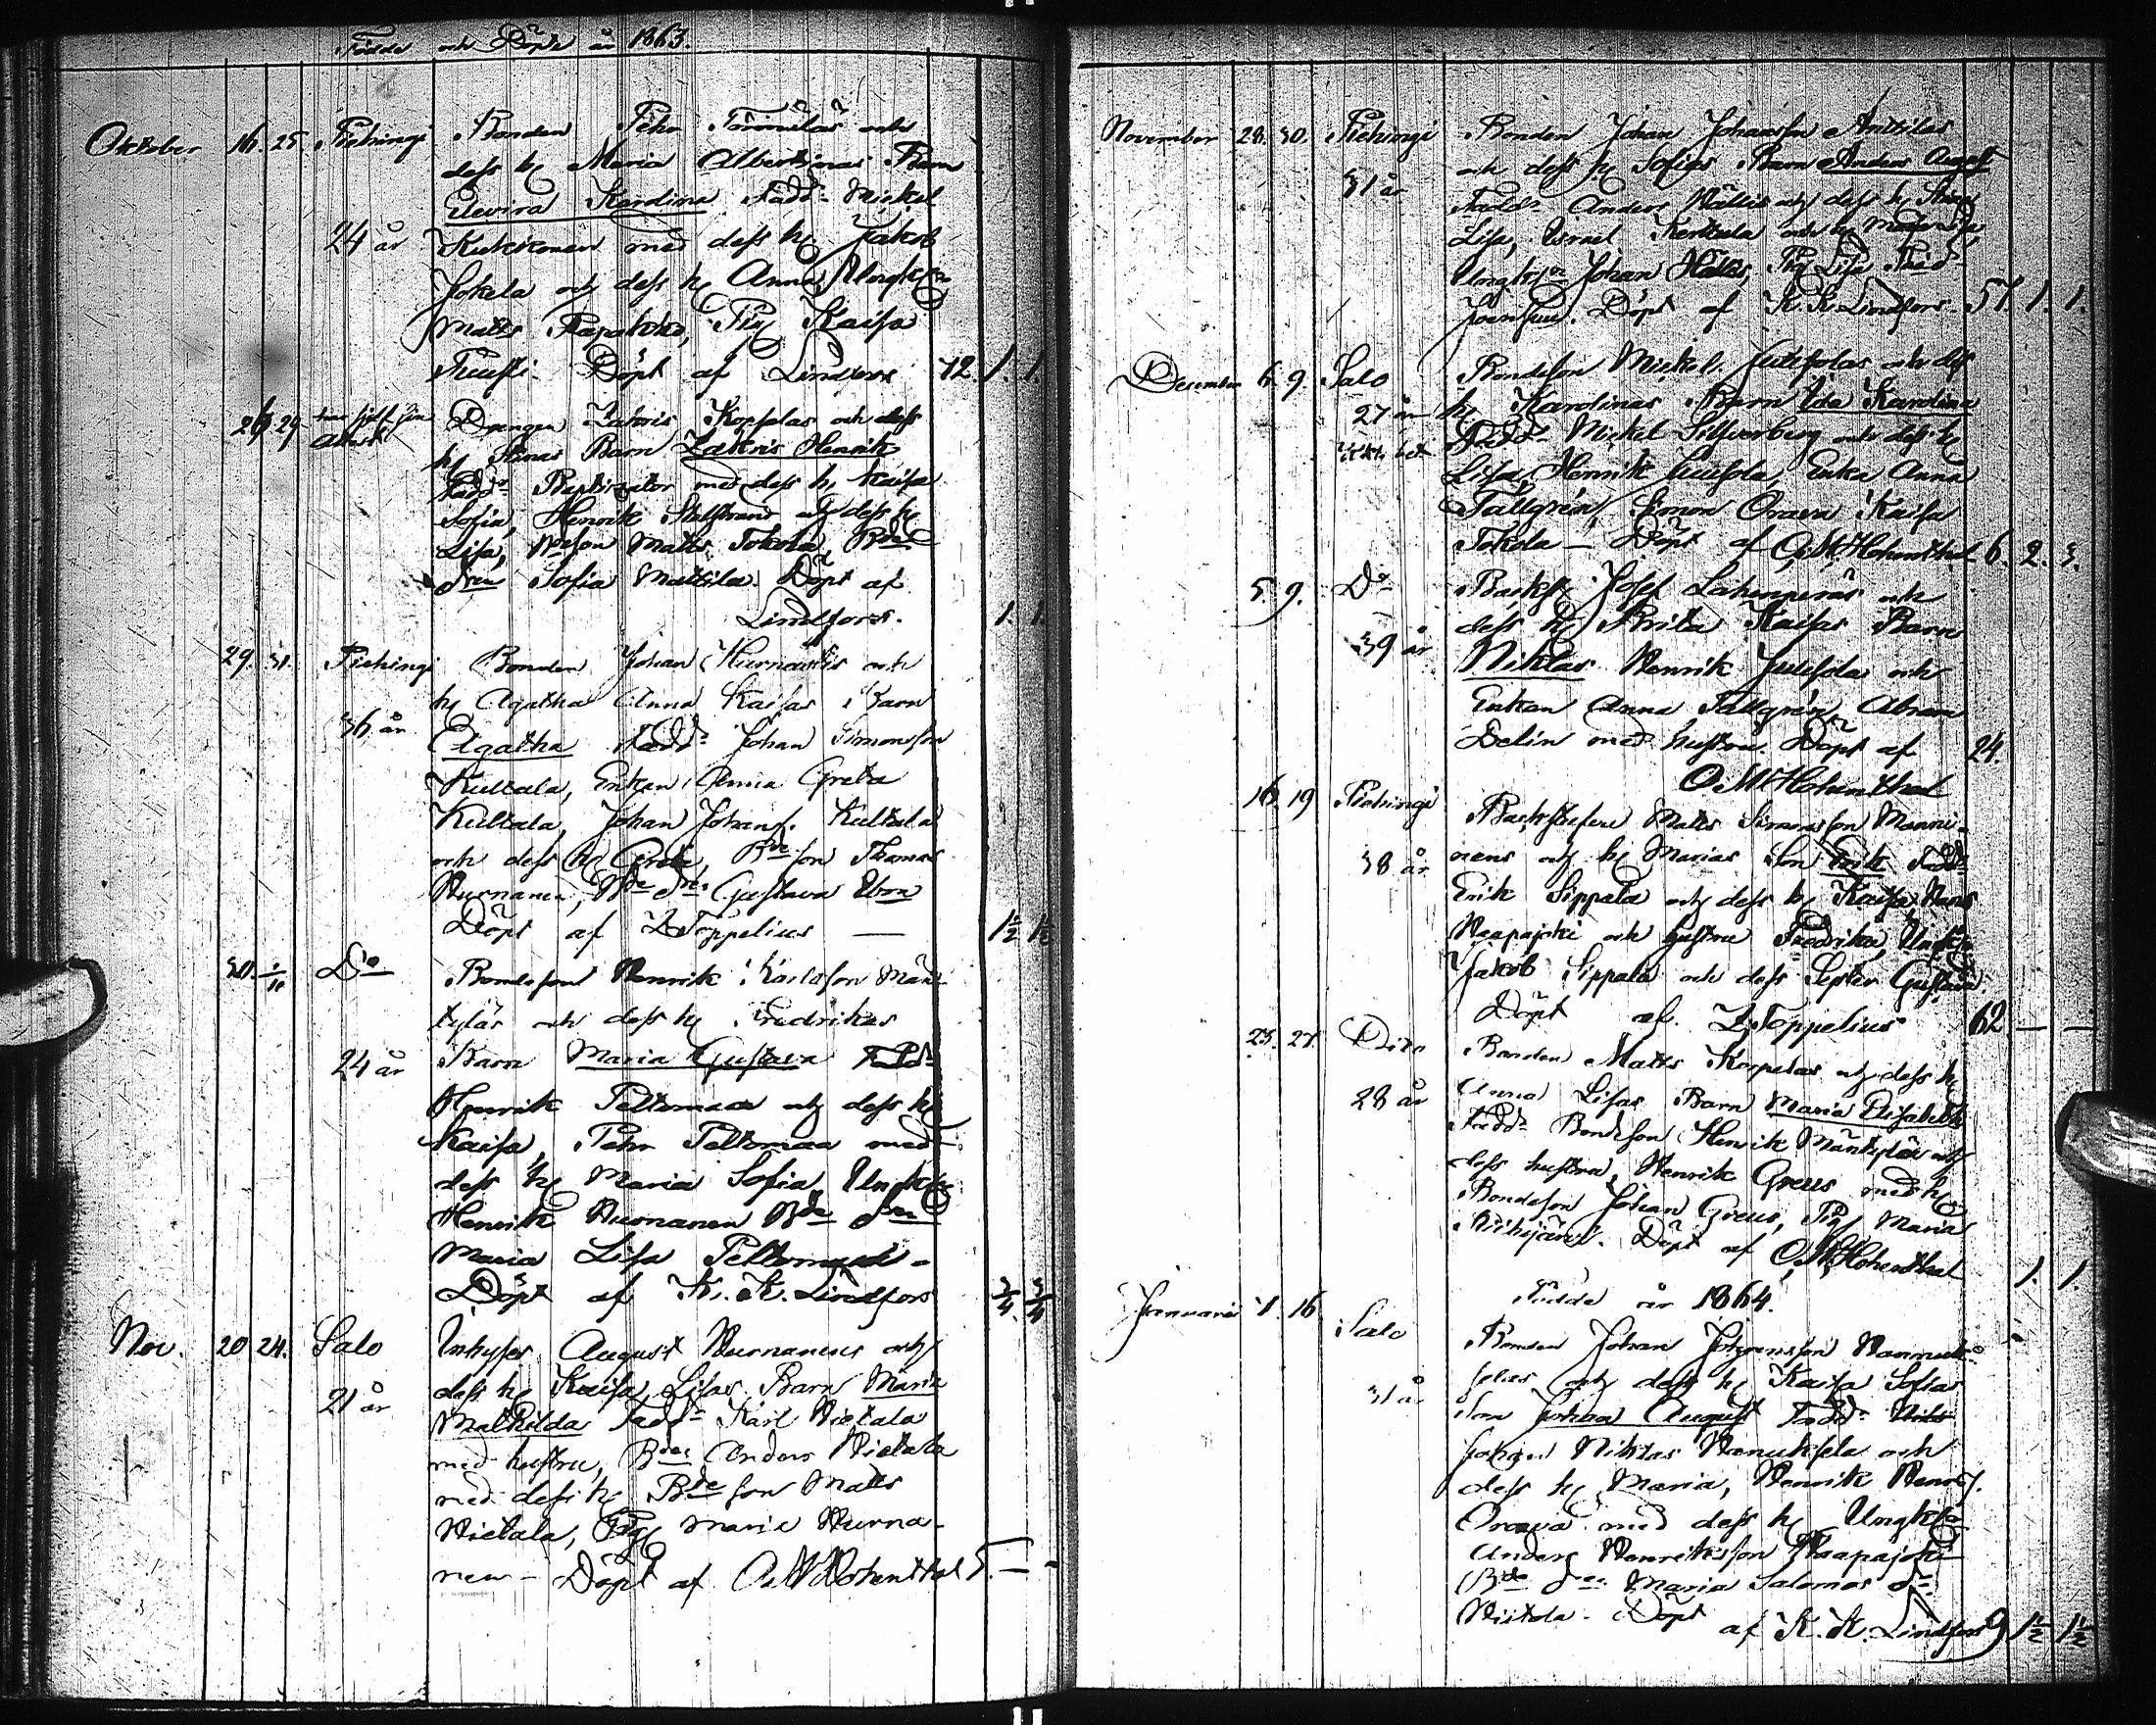 Födde och Döpte år 1863.
Oktober 16. 25. Piehingi Bonden Pehr Törmälas och
dess h. Maria Albertinas Barn
Elevira Karolina Fadd. Mickel
24 år Kukkonen med dess h. Jakob
Jokela och dess h. Anna, Ungk.
Matts Rapakko, Pig. Kaisa
Döpt af Lindfors 42. 1. 1.
26 29 Drengen Zakris Korpelas och dess
h. Stinas Barn Zakris Henrik
Fadd. med dess h. Kaisa
Sofia, Henrik och dess h.
Lisa, Bdeson Matts Tokola, Bde
Sofia Mattila. Döpt af
Lindfors. 1. 1.
29. 31. Piehingi Bonden Johan Hurnastis och
h. Agatha Anna Kaisas Barn
36 år Agatha Fadd. Johan Simonsson
Kultala, Enkan Anna Greta
Kultala, Johan Johans. Kultala
och dess h. Greta, Bde son Thomas
Hurnanen, Bde Gustava
Döpt af Z Toppelius — 1½ 1½
30. Do Bondeson Henrik Karlsson Män-
tyläs och dess h. Fredrikas
24 år Barn Maria Gustava Fadd.
Henrik Peltomaa och dess h.
Kaisa, Pehr Peltomaa med
dess h. Maria Sofia, Ungk.
Henrik Hurnanen Bde
Maria Lisa Peltomaa -
Döpt af K. K. Lindfors 3/4. 3/4
Nov. 20 24. Salo Inhyses August Hurnanens och
dess h. Kaisa Lisas Barn Maria
21 år Mathilda Fadd. Karl Hietala
med hustru, Anders Hietala
med dess h. Bde son Matts
Hietala, Pig. Maria Hurna-
nen - Döpt af O. W. Hohenthal 5. — -
November 28. 30. Piehingi Bonden Johan Johansson Anttilas
och dess h. Sofias Barn Anders August
31 år Fadd. Anders och dess h. Stina
Lisa, Israel Kerttula och h.
Ungk. Johan Pig Lisa
Döpt af K. K. Lindfors - 57. 1. 1.
December 6. 9. Salo Bondeson Mickel Juusolas och dess
27 år h. Karolinas Barn Ida Karolina
Fadd. Mickel Silfverberg och dess h.
Lisa, Henrik Juusola, Enka Anna
Tallgrén, Simon Orava, Kaisa
Tokola — Döpt af O. W. Hohenthal 6. 2. 3.
5. 9. Do Backst. Josef Lahenperäs och
dess h. Brita Kaisas Barn
39 år Niklas Henrik Juusola och
Enkan Anna Tallgrén, Abram
Delin med hustru. Döpt af 24.
O. W. Hohenthal
16 19 Piehingi Backstusere Matts Simonsson Manni-
38 år nens och h. Marias Son Erik Fadd.
Erik Sippala och dess h. Kaisa, Hans
Haapajoki och hustru Fredrika, Ungk.
Jakob Sippala och dess Syster Gustava,
Döpt af. Z Toppelius 62 — —
25. 27. Dito Bonden Matts Korpelas och dess h.
28 år Anna Lisas Barn Maria Elisabeth
Fadd. Bondeson Henrik Mäntylä och
dess hustru, Henrik Greus med h.
Bondeson Johan Greus, Pig. Maria
Döpt af O. W. Hohenthal 1. 1.
Födde år 1864.
Januari 1. 16 Salo Bonden Johan Johansson Hannuk-
selas och dess h. Kaisa Sofias
31 år Son Johan August Fadd.
Niklas Hanuksela och
dess h. Maria, Henrik Henr.
Orava med dess h. Ungk.
Anders Henriksson Haapajoki
Bde Maria Salomos
Hietala - Döpt
af K. K. Lindfors 9 1½ 1½